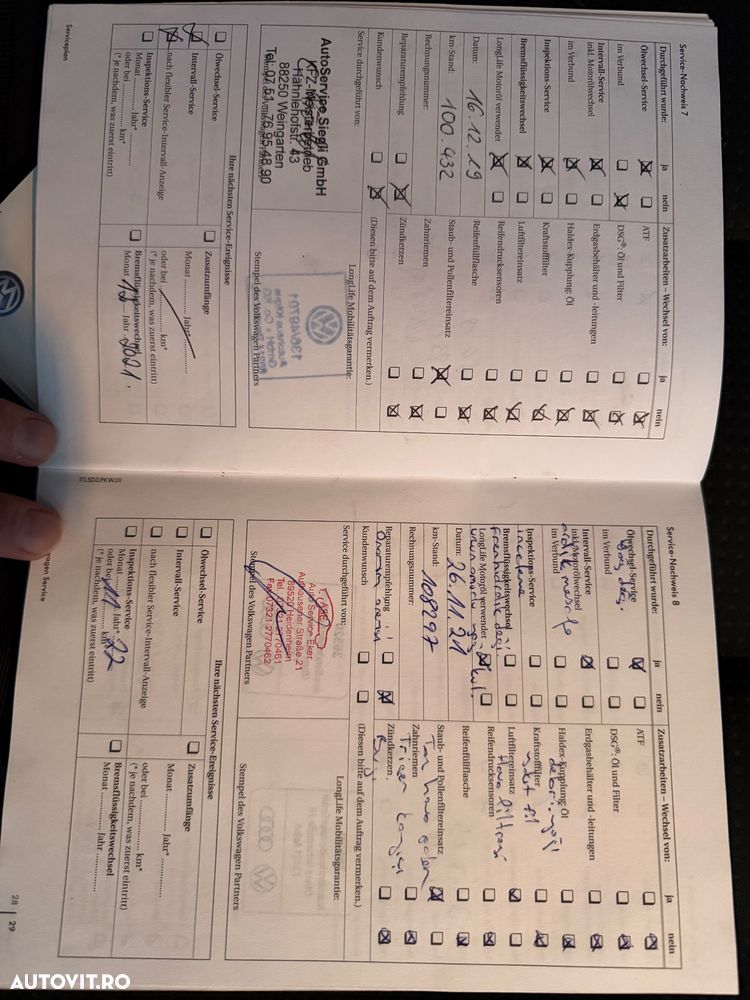 Service-Nachweis 7
Durchgeführt wurde: ja nein
Ölwechsel-Service
im Verbund
Intervall-Service
inkl. Motorölwechsel
im Verbund
Inspektions-Service
Bremsflüssigkeitswechsel
LongLife Motoröl verwendet
Datum: 16.12.19
km-Stand: 100.432
Rechnungsnummer:
Reparaturempfehlung
Kundenwunsch
Service durchgeführt von:
AutoService Siegli GmbH
KFZ-Meisterbetrieb
Hähnlehofstr. 43
88250 Weingarten
Tel. 07 51 - 76 95 48 90
Zusatzarbeiten – Wechsel von: ja nein
ATF
DSG®: Öl und Filter
Erdgasbehälter und -leitungen
Haldex-Kupplung: Öl
Kraftstofffilter
Luftfiltereinsatz
Reifendrucksensoren
Reifenfüllflasche
Staub- und Pollenfiltereinsatz
Zahnriemen
Zündkerzen
(Diesen bitte auf dem Auftrag vermerken.)
LongLife Mobilitätsgarantie:
Stempel des Volkswagen Partners
Ihre nächsten Service-Ereignisse
Ölwechsel-Service
Intervall-Service
nach flexibler Service-Intervall-Anzeige
Inspektions-Service
Monat ........ Jahr*
oder bei ........ km*
(* je nachdem, was zuerst eintritt)
Zusatzumfänge
Monat ........ Jahr*
oder bei ........ km*
(* je nachdem, was zuerst eintritt)
Bremsflüssigkeitswechsel
Monat 12 Jahr 2021
Serviceplan
111.5D3.PKW.01
Service-Nachweis 8
Durchgeführt wurde: ja nein
Ölwechsel-Service
im Verbund
Intervall-Service
inkl. Motorölwechsel
im Verbund
Inspektions-Service
Bremsflüssigkeitswechsel
LongLife Motoröl verwendet
Datum: 26.11.21
km-Stand: 108297
Rechnungsnummer:
Reparaturempfehlung
Kundenwunsch
Service durchgeführt von:
Auto Service Eker
Aufhausener Straße 21
89520 Heidenheim
Tel. 07321 2770461
Fax 07321 2770462
Stempel des Volkswagen Partners
Zusatzarbeiten – Wechsel von: ja nein
ATF
DSG®: Öl und Filter
Erdgasbehälter und -leitungen
Haldex-Kupplung: Öl
Kraftstofffilter
Luftfiltereinsatz
Hava filtresi
Reifendrucksensoren
Reifenfüllflasche
Staub- und Pollenfiltereinsatz
Zahnriemen
Triger
Zündkerzen
(Diesen bitte auf dem Auftrag vermerken.)
LongLife Mobilitätsgarantie:
Stempel des Volkswagen Partners
Ihre nächsten Service-Ereignisse
Ölwechsel-Service
Intervall-Service
nach flexibler Service-Intervall-Anzeige
Inspektions-Service
Monat 11 Jahr* 22
oder bei ........ km*
(* je nachdem, was zuerst eintritt)
Zusatzumfänge
Monat ........ Jahr*
oder bei ........ km*
(* je nachdem, was zuerst eintritt)
Bremsflüssigkeitswechsel
Monat ........ Jahr ........
28 | 29
AUTOVIT.RO